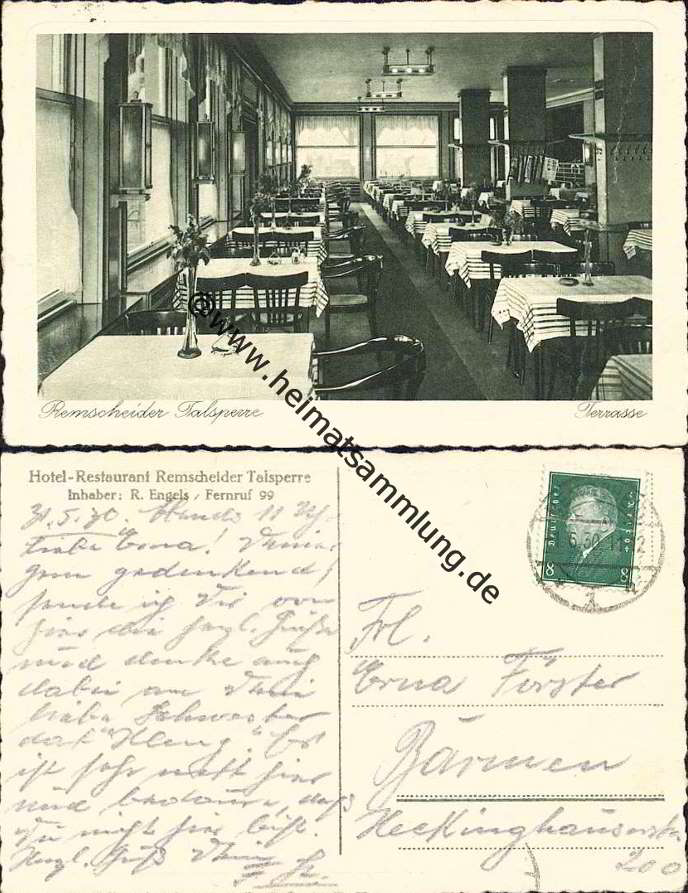 Remscheider Talsperre
Terrasse
@www.heimatsammlung.de
Hotel-Restaurant Remscheider Talsperre
Inhaber: R. Engels / Fernruf 99
31.5.30. Abends 11 Uhr
Liebe Erna!
gern gedenkend,
sende ich Dir von
hier die herzl. Grüße
und denke auch
dabei an
liebe Schwester
Es
ist sehr nett hier
und bedaure, daß
Du nicht hier bist.
Herzl. Gruß
Deutsches Reich
8 8
Frl.
Erna Förster
Barmen
Heckinghauserstr.
200